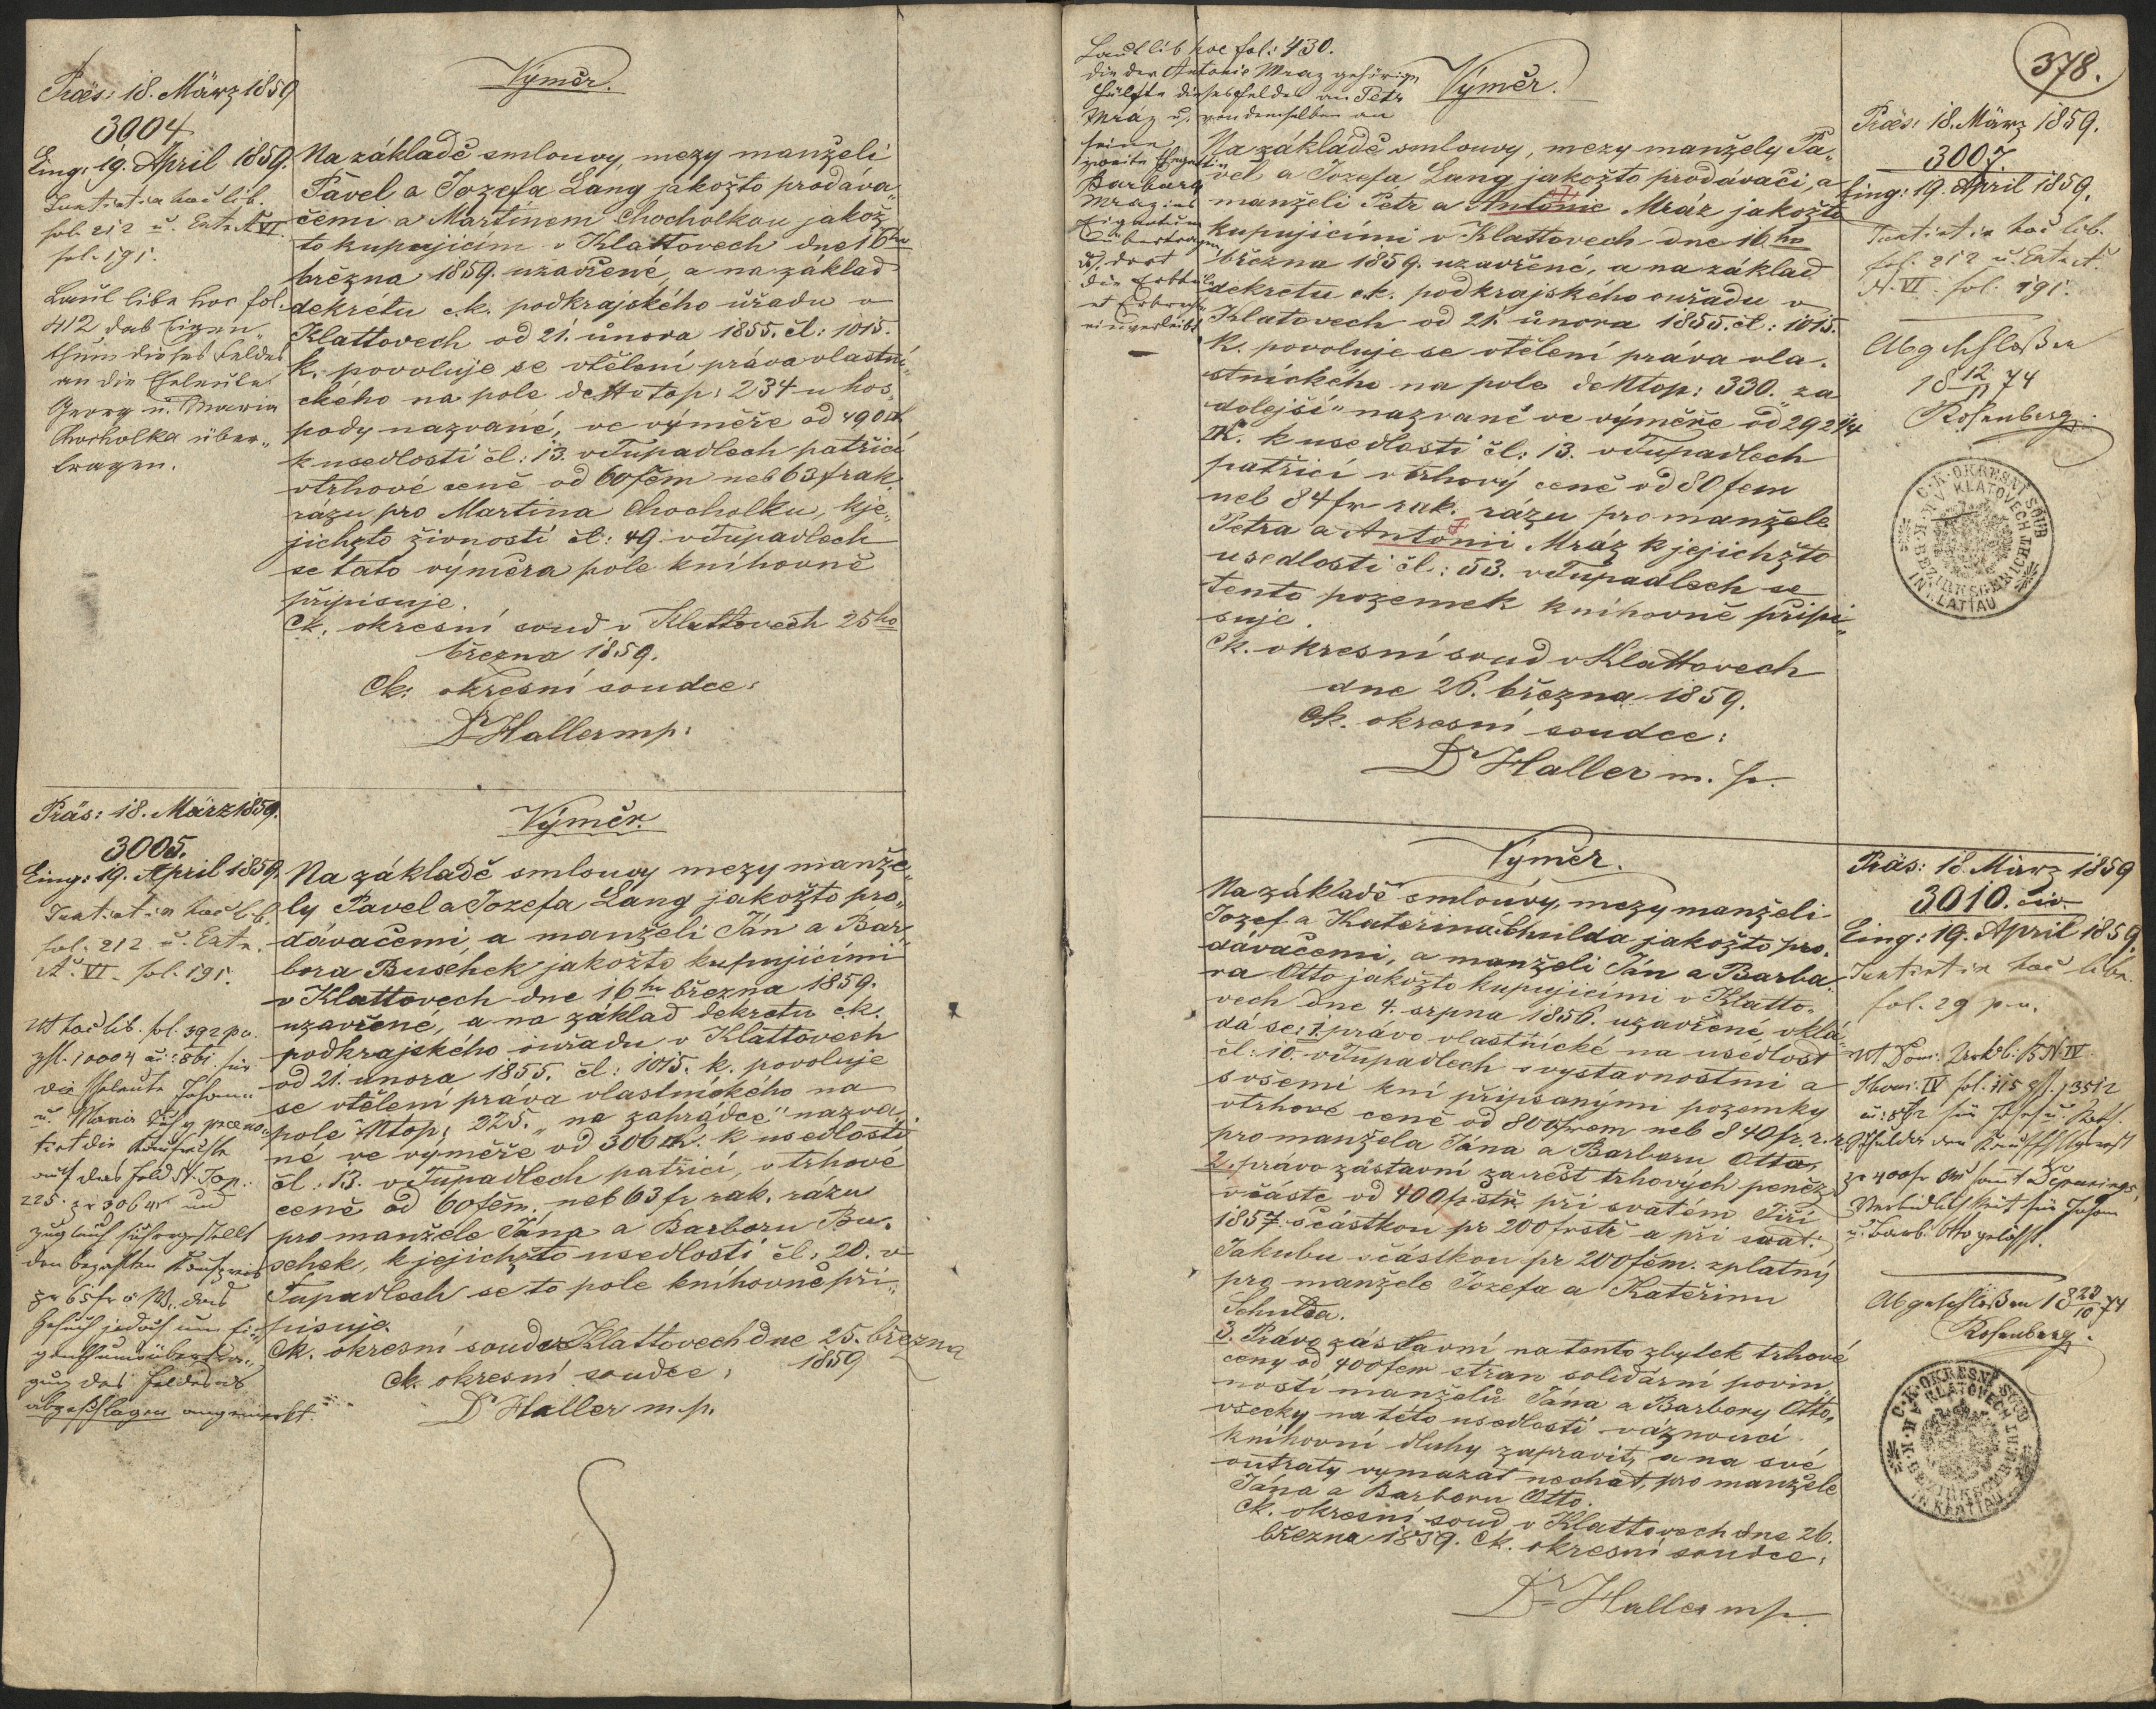 Präs: 18. März 1859
3004
Eing: 19. April 1859.
fol. 212 u. Extr. A VI
fol. 191.
Laut libr. hoc fol.
412 das Eigen„
thum dieses Feldes
an die Eheleute
Georg u. Maria
Chocholka über„
tragen.
Výměr.
Na základě smlouvy, mezy manželi
Pavel a Jozefa Lang jakožto prodáva„
čemi a Martinem Chocholkou jakož„
to kupujícím v Klattovech dne 16ho
března 1859. uzavřené, a na základ
dekrétu c.k. podkrajského úřadu v
Klattovech od 21. února 1855. čl: 1015.
k. povoluje se vtělení práva vlastni„
ckého na pole dettotop: 234 u hos„
pody nazvané, ve výměře od 490
k usedlosti čl: 13. v Tupadlech patřící
v trhové ceně od 60 fčm neb 63 f rak.
rázu pro Martina Chocholku, kje„
jichžto živnosti čl: 49 v Tupadlech
se tato výměra pole kníhovně
připisuje.
Ck. okresní soud v Klattovech 25ho
března 1859.
Ck: okresní soudce:
Dr Haller mp:
Präs: 18. März 1859.
3005.
Eing: 19. April 1859.
fol. 212 u. Extr.
A. VI fol. 191.
die Eheleute Johann
u. Maria
auf das Feld N. Top.
225. und
den bezahlten Kaufpreis
pr 65 fr ö. W. das
Gesuch jedoch um Ei„
genthumsübertra„
gung des Feldes als
abgeschlagen angemerkt.
Výměr.
Na základě smlouvy mezy manže„
ly Pavel a Jozefa Lang jakožto pro„
dávačemi, a manželi Ján a Bar„
bora Buschek jakožto kupujícími
v Klattovech dne 16ho března 1859.
uzavřené, a na základ dekretu ck.
podkrajského ouřadu v Klattovech
od 21. února 1855. čl: 1015. k. povoluje
se vtělení práva vlastnického na
pole Ntop: 225. „na zahrádce" nazva„
né ve výměře od 306 k usedlosti
čl: 13. v Tupadlech patřící, v trhové
ceně od 60 fčm. neb 63 fr rak. rázu
pro manžele Jána a Barboru Bu„
schek, k jejichžto usedlosti čl: 20. v
Tupadlech se to pole kníhovně při„
pisuje.
Ck. okresní soud v Klattovech dne 25. března
1859
Ck. okresní soudce:
Dr Haller mp.
378.
Laut lib hoc fol: 430.
die der Antonie Mraz gehörige
Hälfte dieses Feldes an Petr
Mráz u. von demselben an
seine
zweite Ehegattin
Barbara
Mraz ins
Eigenthum
übertragen
u. dort
einverleibt
Výměr.
Na základě smlouvy, mezy manžely Pa„
vel a Jozefa Lang jakožto prodávači, a
manželi Petr a Antonie Mráz jakožto
kupujícími v Klattovech dne 16.ho
března 1859. uzavřené, a na základ
dekretu ck. podkrajského ouřadu v
Klatovech od 21. února 1855. čl: 1015.
k. povoluje se vtělení práva vla„
stnického na pole dettop: 330. „za
dolejší" nazvané ve výměře od 292 2/4
k usedlosti čl: 13. v Tupadlech
patřící v trhový ceně od 80 fčm
neb 84 fr rak. rázu pro manžele
Petra a Antonii Mráz k jejichžto
usedlosti čl: 53. v Tupadlech se
tento pozemek kníhovně připi„
suje.
Ck. okresní soud v Klattovech
dne 26. března 1859.
Ck. okresní soudce:
Dr Haller m. p.
Präs: 18. März 1859.
3007
Eing: 19. April 1859.
fol. 212 u. Extr.
A. VI. fol. 191.
Abgeschloßen
18 12/11 74
Rosenberg
C. K. OKRESNÍ SOUD
V KLATOVECH
K. K. BEZIRKSGERICHT
IN KLATTAU
Výměr.
Na základě smlouvy, mezy manželi
Jozef a Kateřina Schulda jakožto pro„
dávačemi, a manželi Ján a Barba„
ra Otto jakožto kupujícími v Klatto„
vech dne 4. srpna 1856. uzavřené vklá„
dá se: 1. právo vlastnické na usedlost
čl: 10. v Tupadlech s vystavnostmi a
svšemi kní připsanými pozemky
v trhové ceně od 800 frčm neb 840 fr. r. r.
pro manžela Jána a Barboru Otto,
2. právo zástavní za rest trhových peněz
v částe od 400 fr stř. při svatém Jiří
1857. s částkou pr 200 fr stř a při svat.
Jakubu s částkou pr 200 fčm. zplatný
pro manžele Jozefa a Kateřinu
Schulda.
3. Právo zástavní na tento zbytek trhové
ceny od 400 fčm stran solidární povin„
nosti manželů Jána a Barbory Otto,
všecky na této usedlosti váznoucí
kníhovní dluhy zapravit, a na své
outraty vymazat nechat, pro manžele
Jána a Barboru Otto.
Ck. okresní soud v Klattovech dne 26.
března 1859. Ck. okresní soudce:
Dr Haller mp.
Präs: 18. März 1859
3010. civ.
Eing: 19. April 1859.
fol. 29 p. v.
u. Barb. Otto gelöscht.
Abgeschloßen 18 23/10 74
Rosenberg.
C. K. OKRESNÍ SOUD
V KLATOVECH
K. K. BEZIRKSGERICHT
IN KLATTAU